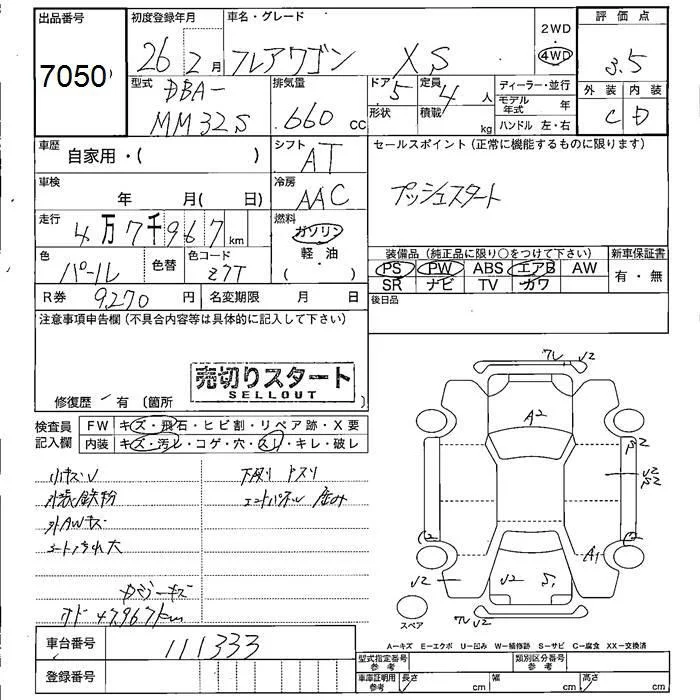 出品番号
7050
初度登録年月
26年 2月
車名・グレード
フレアワゴン XS
2WD
4WD
評価点
3.5
外装 内装
C D
型式
DBA-
MM32S
排気量
660 cc
ドア 5
形状
定員 4 人
積載 kg
ディーラー・並行
モデル年式 年
ハンドル 左・右
車歴
自家用・( )
シフト
AT
セールスポイント (正常に機能するものに限ります)
プッシュスタート
車検
年 月( 日)
冷房
AAC
走行
4万7千967 km
燃料
ガソリン
軽・油
( )
色
パール
色替
色コード
Z7T
装備品 (純正品に限り○をつけて下さい)
PS PW ABS エアB AW
SR ナビ TV カワ
新車保証書
有・無
R券 9270 円
名変期限 月 日
後日品
注意事項申告欄 (不具合内容等は具体的に記入して下さい)
売切りスタート
SELLOUT
修復歴 有 (箇所 )
検査員
記入欄
FW キズ・飛石・ヒビ割・リペア跡・X要
内装 キズ・汚レ・コゲ・穴・スレ・キレ・破レ
小キズU
下廻り
外装鉄粉
エンドパネル 歪み
外AWキズ
シートよごれ大
オド 47967km
A2
U2
A1
U2
U2
S1
U2
スペア
車台番号
111333
登録番号
A−キズ E−エクボ U−凹み W−補修跡 S−サビ C−腐食 XX−交換済
型式指定番号
参考
類別区分番号
参考
車庫証明用
参考
長さ cm
幅 cm
高さ cm